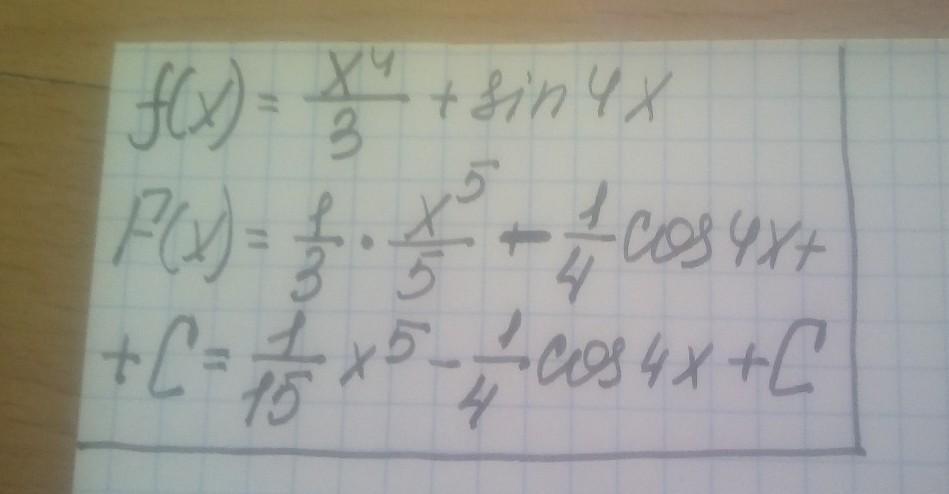 f(x) = x⁴/3 + sin 4x
F(x) = 1/3 · x⁵/5 - 1/4 cos 4x +
+ C = 1/15 x⁵ - 1/4 cos 4x + C